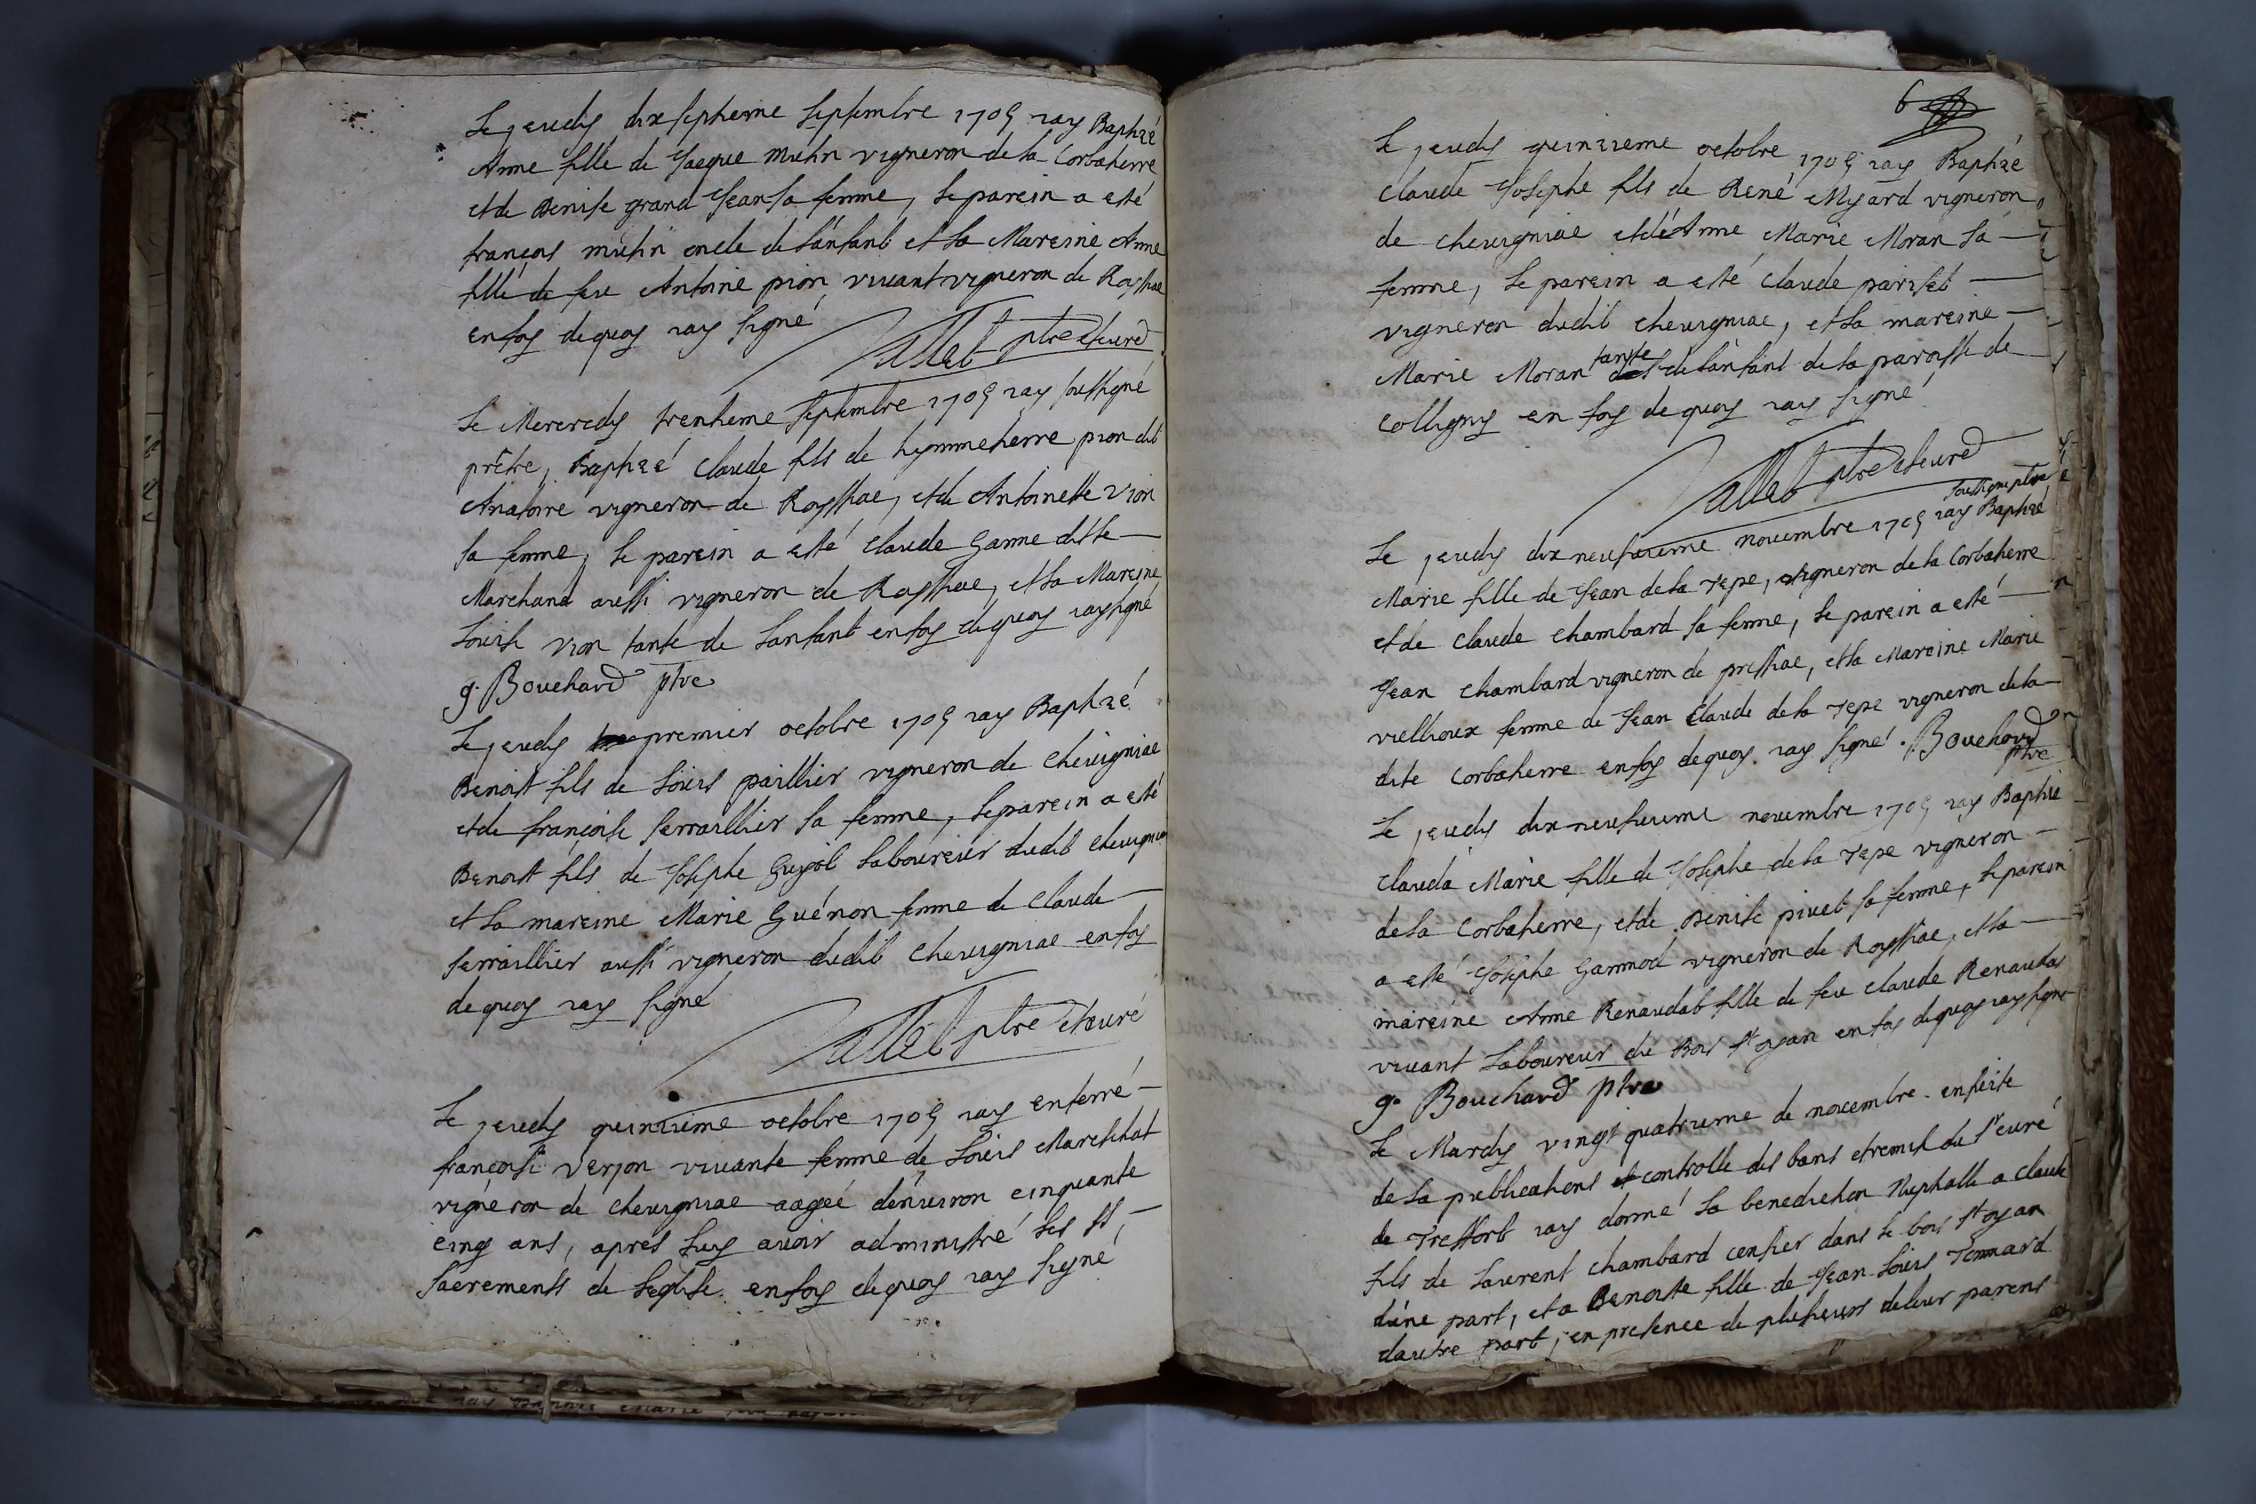 Le jeudy dix septieme septembre 1705 iay Baptizé
Anne fille de Jacque mithn vigneron de la Corbatierre
et de Denise grand Jean sa femme, le parein a esté
françois mithn oncle de l'anfant et la Mareine Anne
fille de feu Antoine pion vivant vigneron de Roissiac
en foy de quoy iay signé
Sallet ptre et curé
Le Mercredy trentieme septembre 1705 iay soussigné
prêtre, Baptizé Claude fils de hymmetierre pion dit
Anatoire vigneron de Royssiac, et de Antoinette Vion
sa femme, le parein a esté Claude Ganne ditte
Marchand aussi vigneron de Royssiac, et la Mareine
Louise Vion tante de lanfant en foy de quoy iay signé
g. Bouchard ptre
Le jeudy premier octobre 1705 iay Baptizé
Benoist fils de Loüis paillier vigneron de Chevigniac
et de françoise serraillier sa femme, le parein a esté
Benoist fils de Josephe Guyot laboureur dudit chevigniac
et la mareine Marie Guénon femme de Claude
serraillier aussi vigneron dudit Chevigniac en foy
de quoy iay signé
Sallet ptre et curé
Le jeudy quinzieme octobre 1705 iay enterré
françoise Verjon vivante femme de Loüis Marechdat
vigneron de chevigniac aageé dénviron cinquante
cinq ans, apres luy avoir administré les SS,
sacrements de leglise en foy de quoy iay signé
6
Le jeudy quinzieme octobre 1705 iay Baptizé
Claude Josephe fils de René Myard vigneron
de chevigniac et dé Anne Marie Moran sa
femme, le parein a esté Claude pariset
vigneron dudit chevigniac, et la mareine
Marie Moran tante de lanfant de la paroisse de
Colligny en foy de quoy iay signé
Sallet ptre et curé
soussigné ptre
Le jeudy dix neufvieme novembre 1705 iay Baptizé
Marie fille de Jean de la Tepe, vigneron de la Corbatierre
et de Claude Chambard sa femme, le parein a esté
Jean Chambard vigneron de pressiac, et la Mareine Marie
vielhoux femme de Jean Claude de la Tepe vigneron de la
dite Corbatierre en foy de quoy iay signé. Bouchard
ptre
Le jeudy dix neufvieme novembre 1705 iay Baptizé
Clauda Marie fille de Josephe de la Tepe vigneron
de la Corbatierre, et de Denise pivet sa femme, le parein
a esté Josephe Gammod vigneron de Royssiac, et la
mareine Anne Renaudat fille de feu Claude Renaudat
vivant laboureur du Bois st oyan en foy de quoy iay signé
g. Bouchard ptre
Le Mardy vingt quatrieme de novembre ensuite
de la publications et controlle des bans et remise du sr curé
de Treffort iay donné la benediction Nuptialle a Claude
fils de Laurent Chambard censier dans le bois st oyan
dúne part, et a Benoite fille de Jean Loüis Tonnard
dautre part, en presence de plusieurs de leur parens